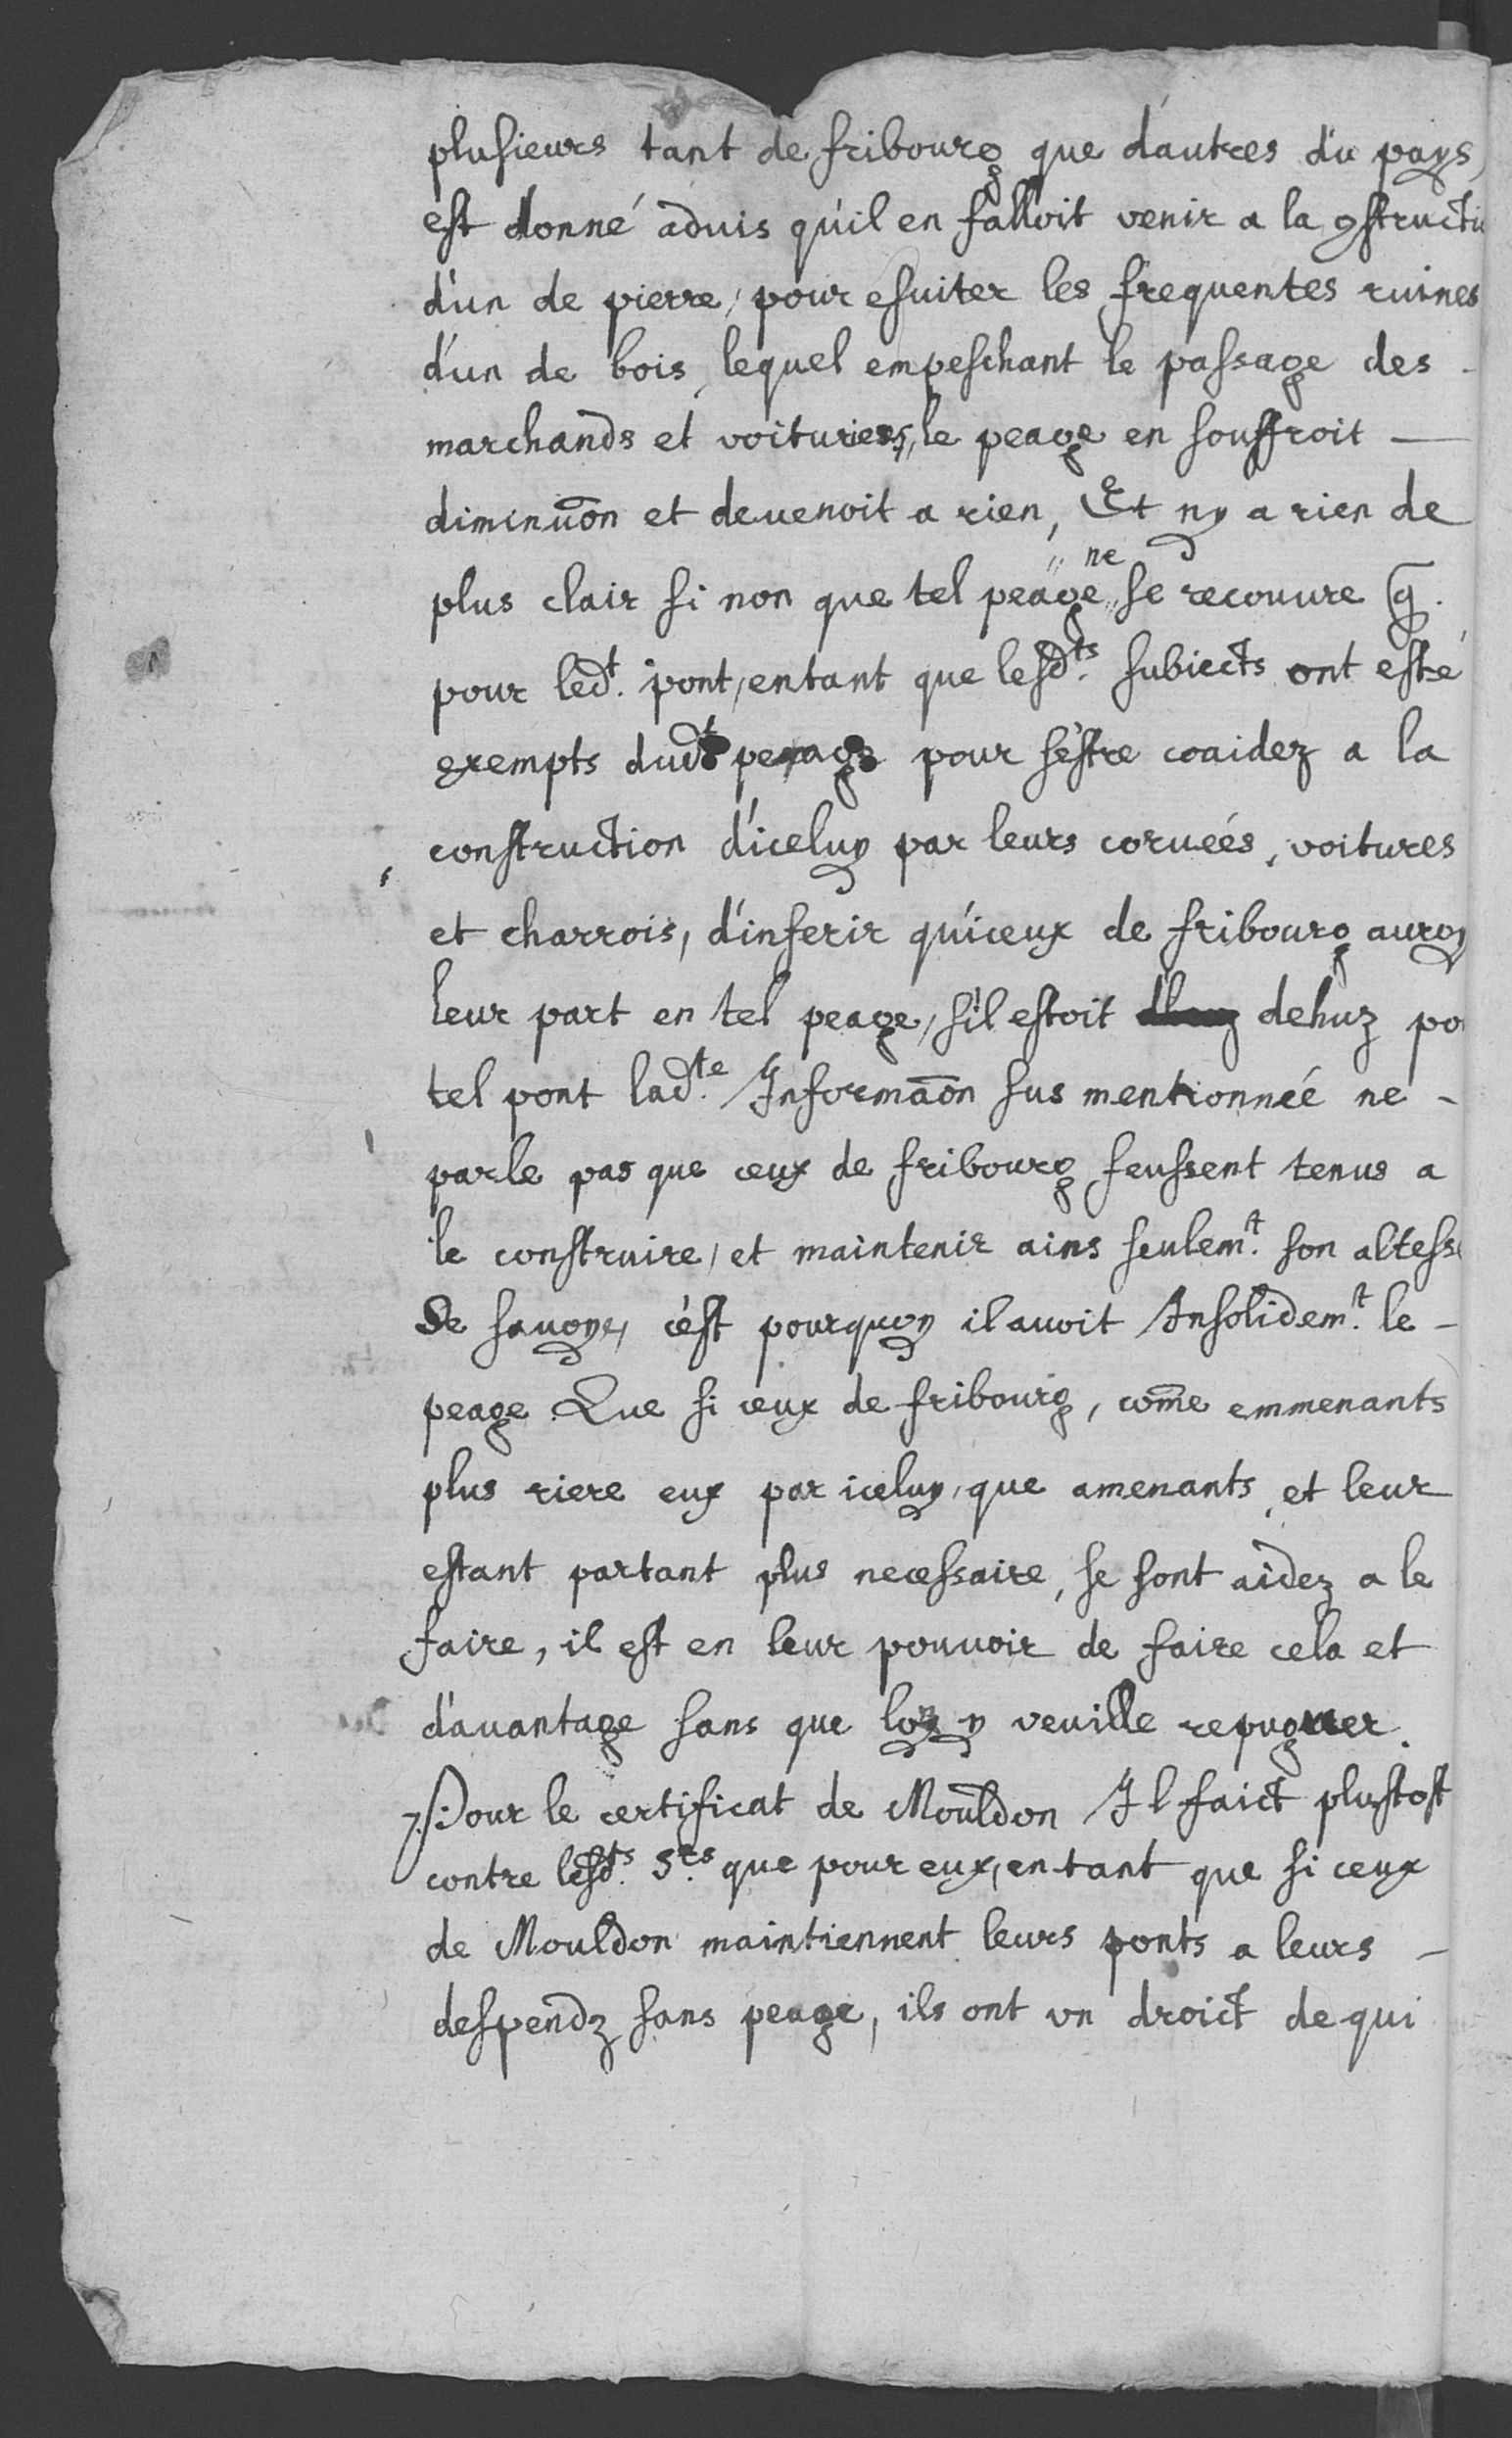 plusieurs tant de fribourg que d'autres du pays,
est donné aduis qu'il en falloit venir a la 9structi
d'un de pierre, pour esuiter les frequentes ruines
d'un de bois, lequel empeschant le passage des -
marchands et voituriers, le peage en souffroit —
diminuõn et deuenoit a rien, Et ny a rien de
plus clair si non que tel peage ne se recouure q̄.
pour led.t pont, entant que lesd.ts subiects ont esté
exempts dud.t peage pour s'estre coaidez a la
construction d'iceluy par leurs coruéés, voitures
et charrois, d'inferir qu'iceux de fribourg auroy
leur part en tel peage, s'il estoit dehuz po
tel pont lad.te Informãon sus mentionnéé ne -
parle pas que ceux de fribourg feussent tenus a
le construire, et maintenir ains seulem.t son altess
De sauoye, c'est pourquoy il auoit Insolidem.t le -
peage Que si ceux de fribourg, com̃e emmenants
plus riere eux par iceluy, que amenants, et leur
estant partant plus necessaire, se sont aidez a le
faire, il est en leur pouuoir de faire cela et
d'auantage sans que loy y veuille repugner.
Pour le certificat de Mouldon Il faict plustost
contre lesd.ts S.rs que pour eux, entant que si ceux
de Mouldon maintiennent leurs ponts a leurs -
despendz sans peage, ils ont vn droict de qui